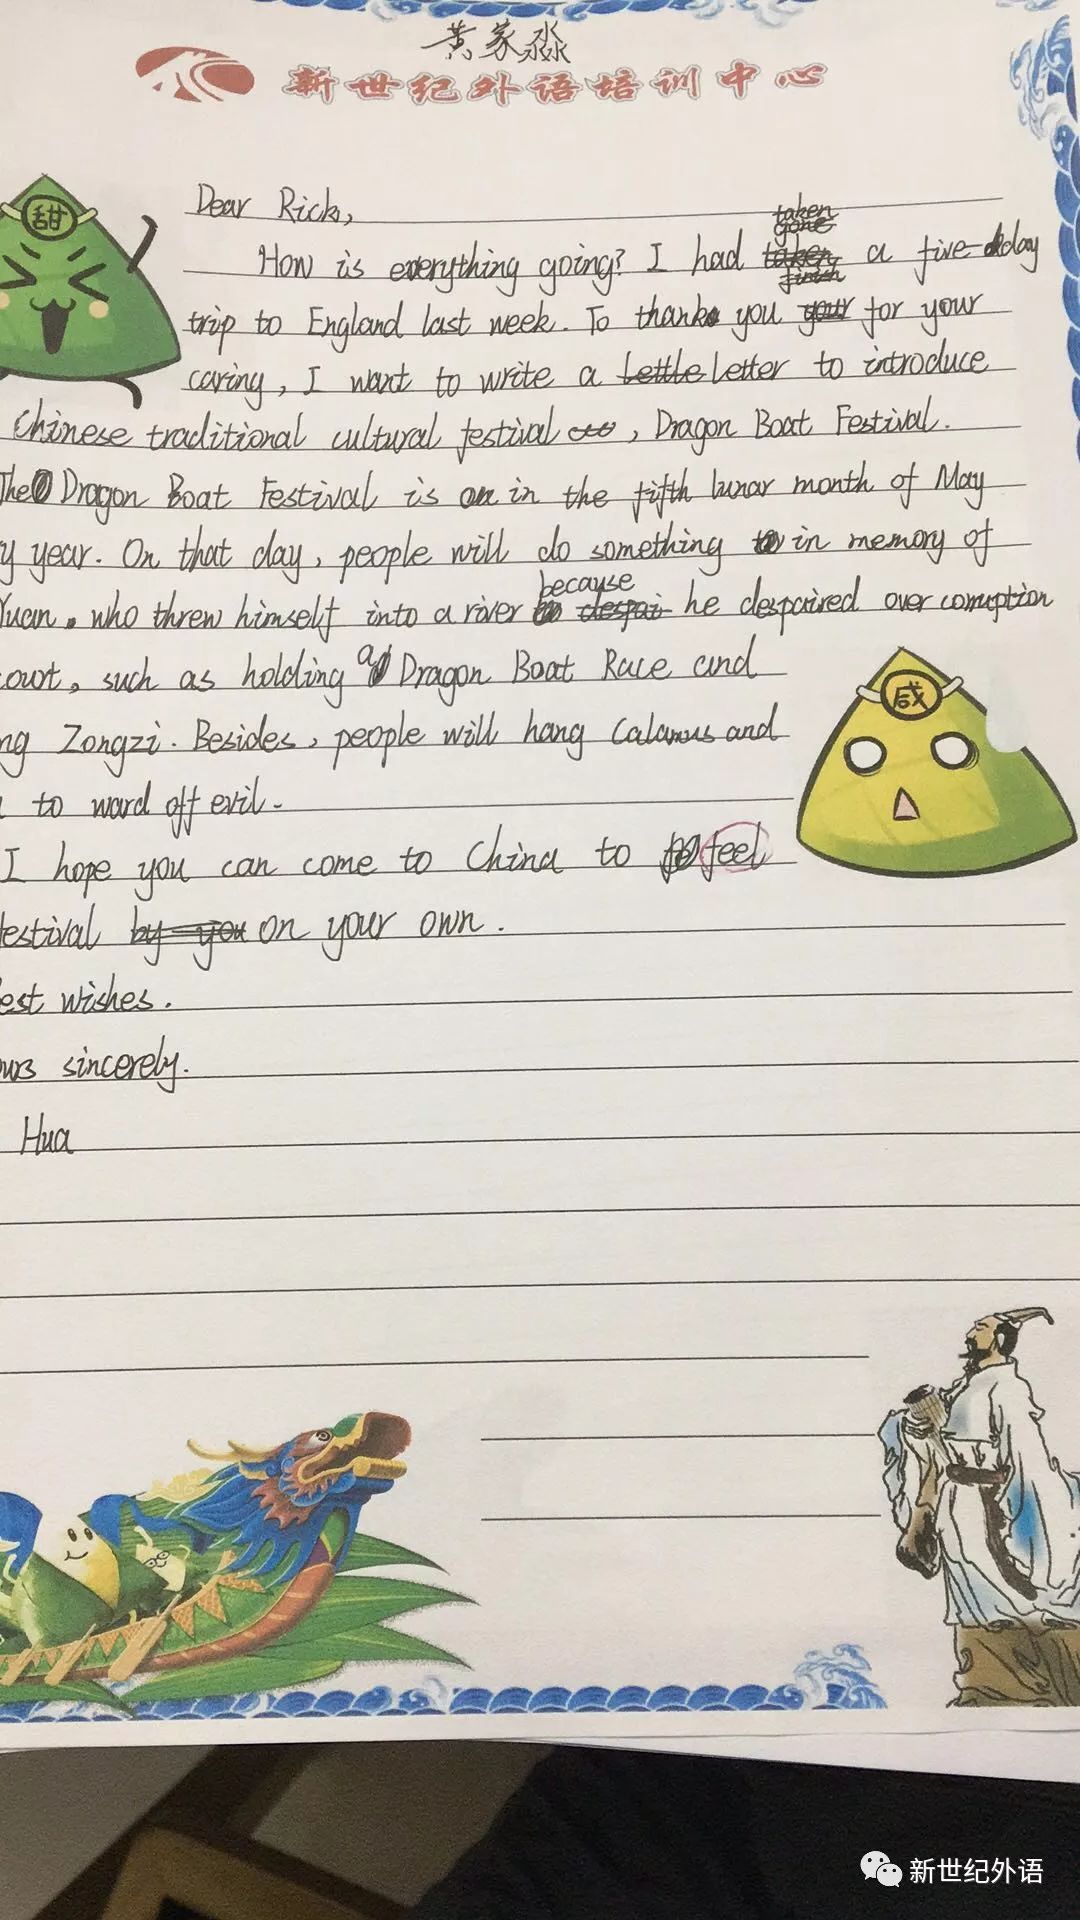 黄家淼
新世纪外语培训中心
甜
Dear Rick,
taken
gone
How is everything going? I had taken a five-day
finish
trip to England last week. To thank you your for your
caring, I want to write a lettle letter to introduce
Chinese traditional cultural festival, Dragon Boat Festival.
The Dragon Boat Festival is on in the fifth lunar month of May
y year. On that day, people will do something to in memory of
because
Yuan, who threw himself into a river despai he despaired over corruption
court, such as holding a Dragon Boat Race and
ng Zongzi. Besides, people will hang Calamus and
to ward off evil.
咸
I hope you can come to China to feel
festival by you on your own.
est wishes.
ours sincerely.
Hua
新世纪外语